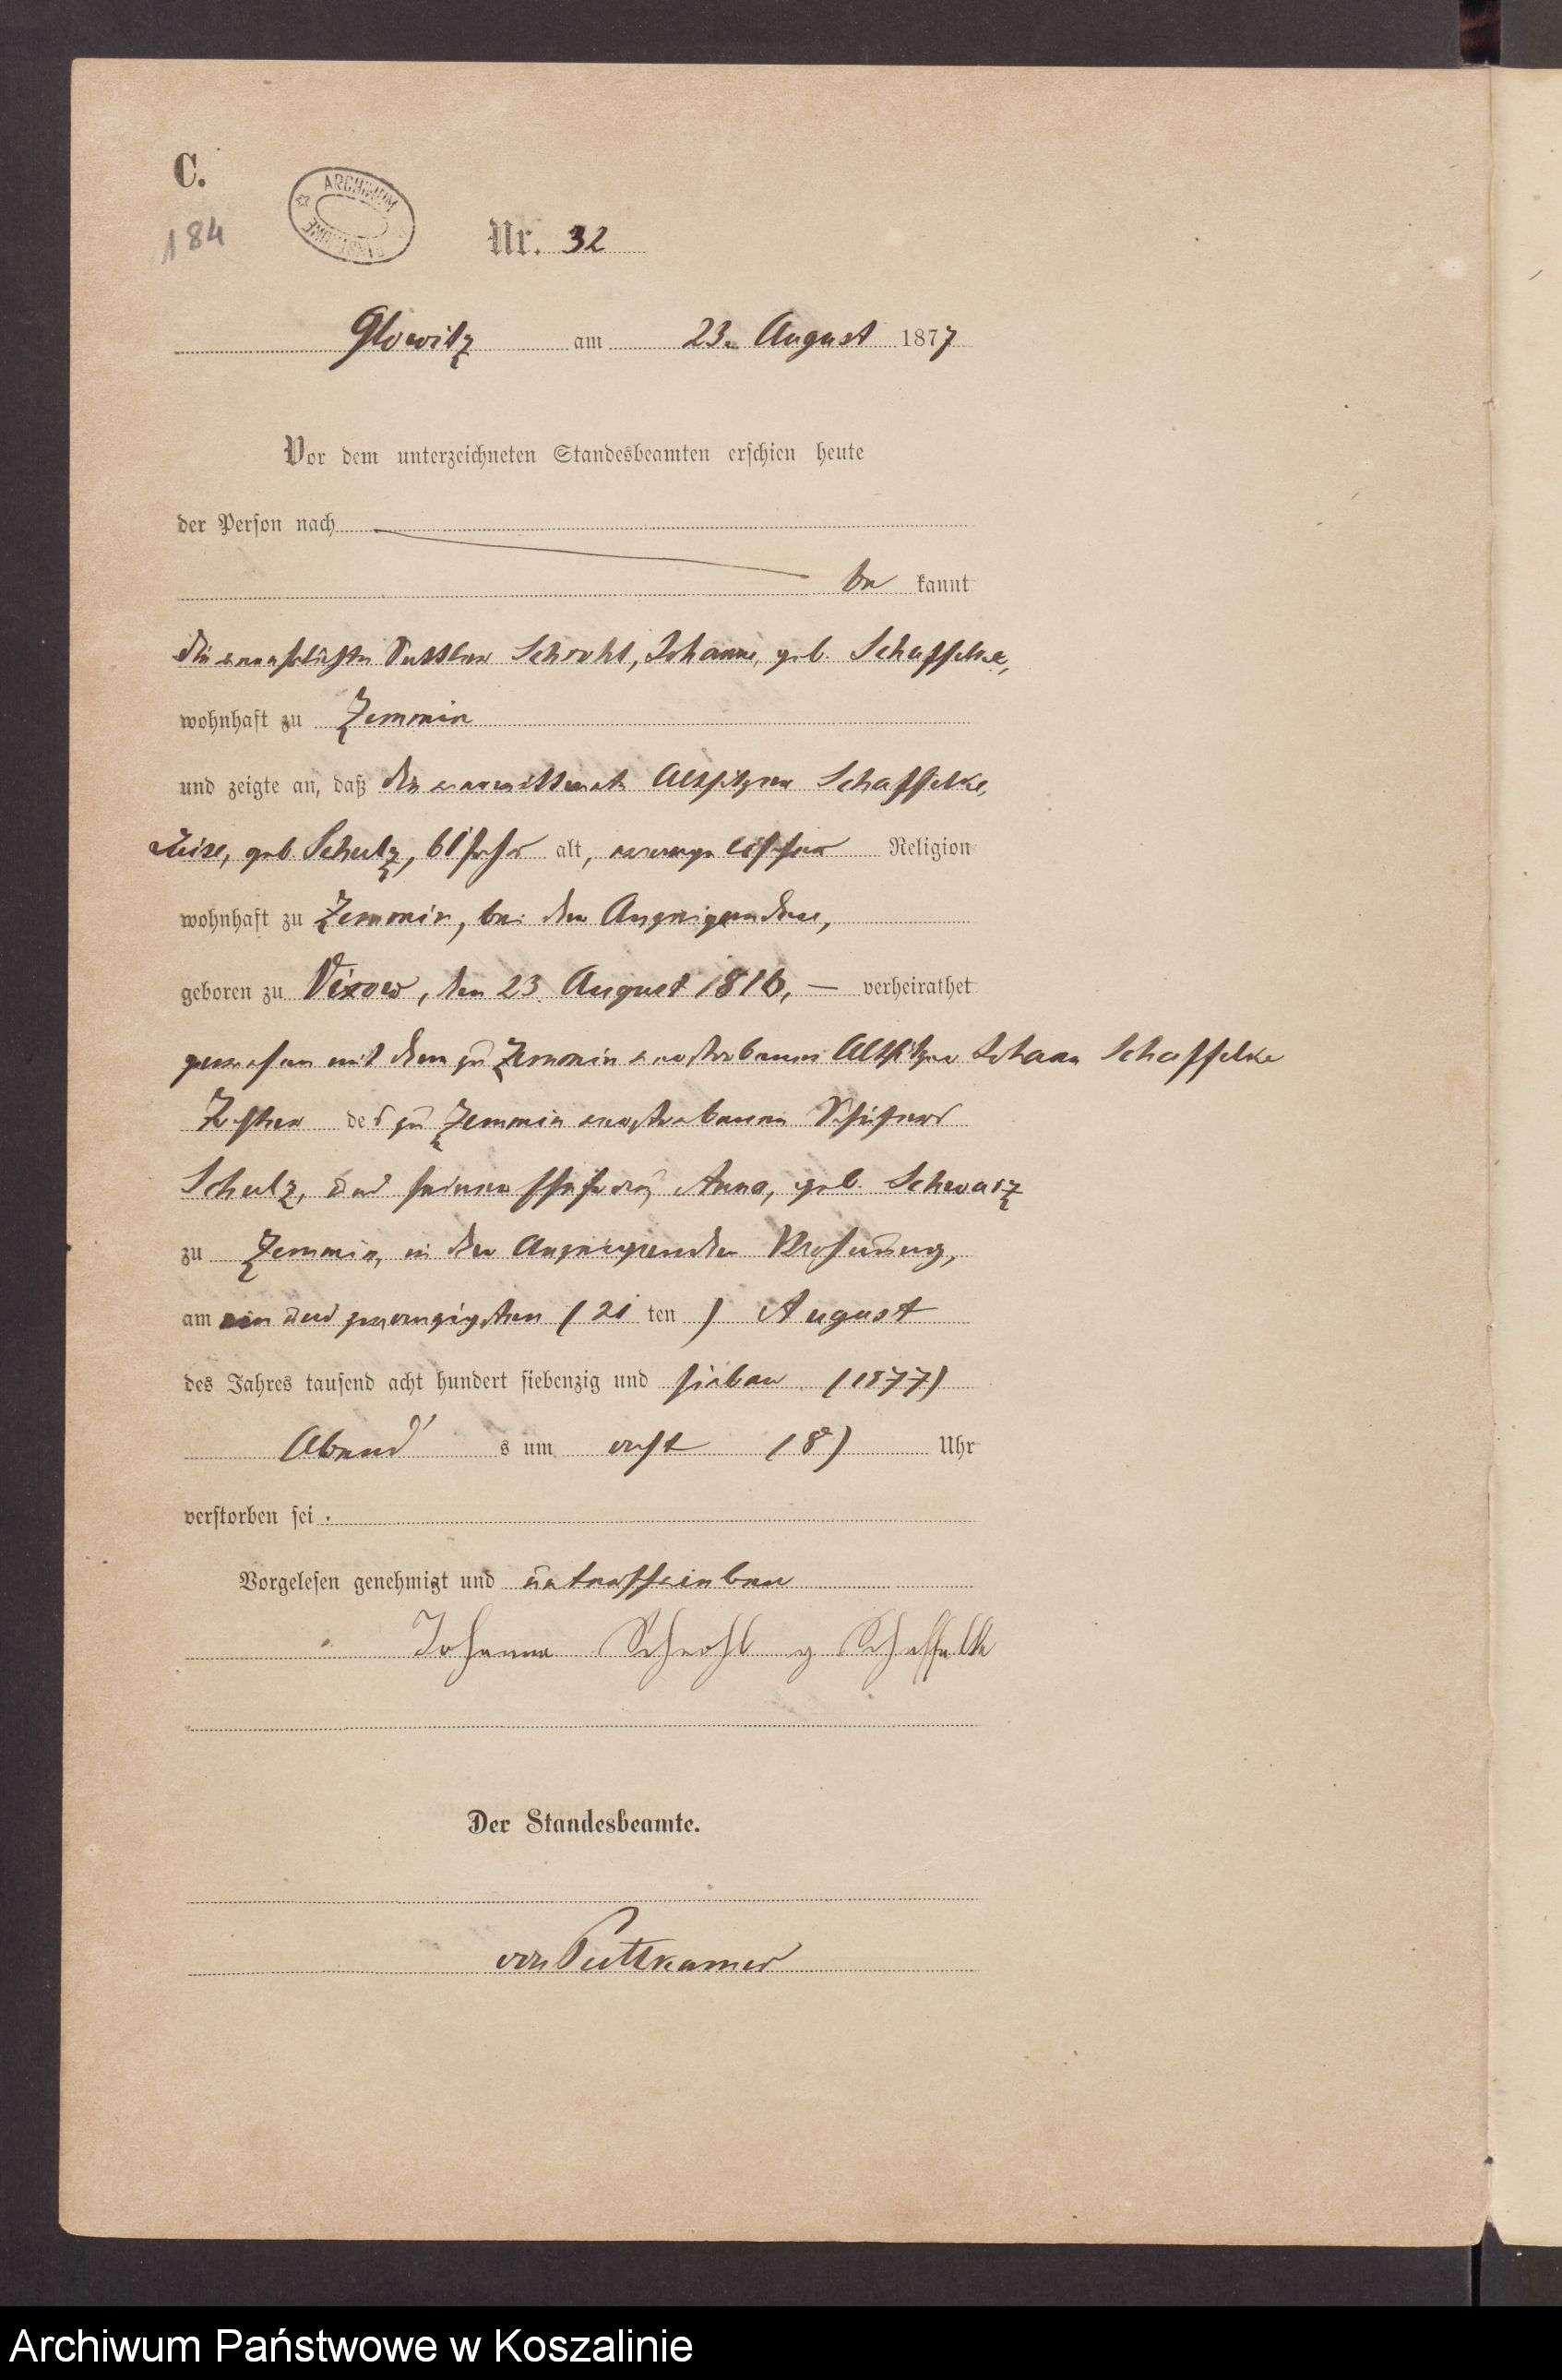 C.
184
ARCHIWUM
Nr. 32
Glowitz am 23. August 1877
Vor dem unterzeichneten Standesbeamten erschien heute
der Person nach
be kannt
die verehelichte Sattler Schroht, Johanne, geb. Schaffelke,
wohnhaft zu Zemmin
und zeigte an, daß die verwittwete Altsitzer Schaffelke,
Luise, geb. Schulz, 61 Jahr alt, evangelischer Religion
wohnhaft zu Zemmin, bei der Anzeigenden,
geboren zu Vixow, den 23. August 1816, — verheirathet
gewesen mit dem zu Zemmin verstorbenen Altsitzer Johann Schaffelke
Tochter des zu Zemmin verstorbenen Schäfers
Schulz, und seiner Ehefrau Anna, geb. Schwarz
zu Zemmin, in der Anzeigenden Wohnung,
am ein und zwanzigsten (21 ten) August
des Jahres tausend acht hundert siebenzig und sieben (1877)
Abend s um acht (8) Uhr
verstorben sei.
Vorgelesen genehmigt und unterschrieben
Johanna g Schaffelke
Der Standesbeamte.
von Puttkamer
Archiwum Państwowe w Koszalinie